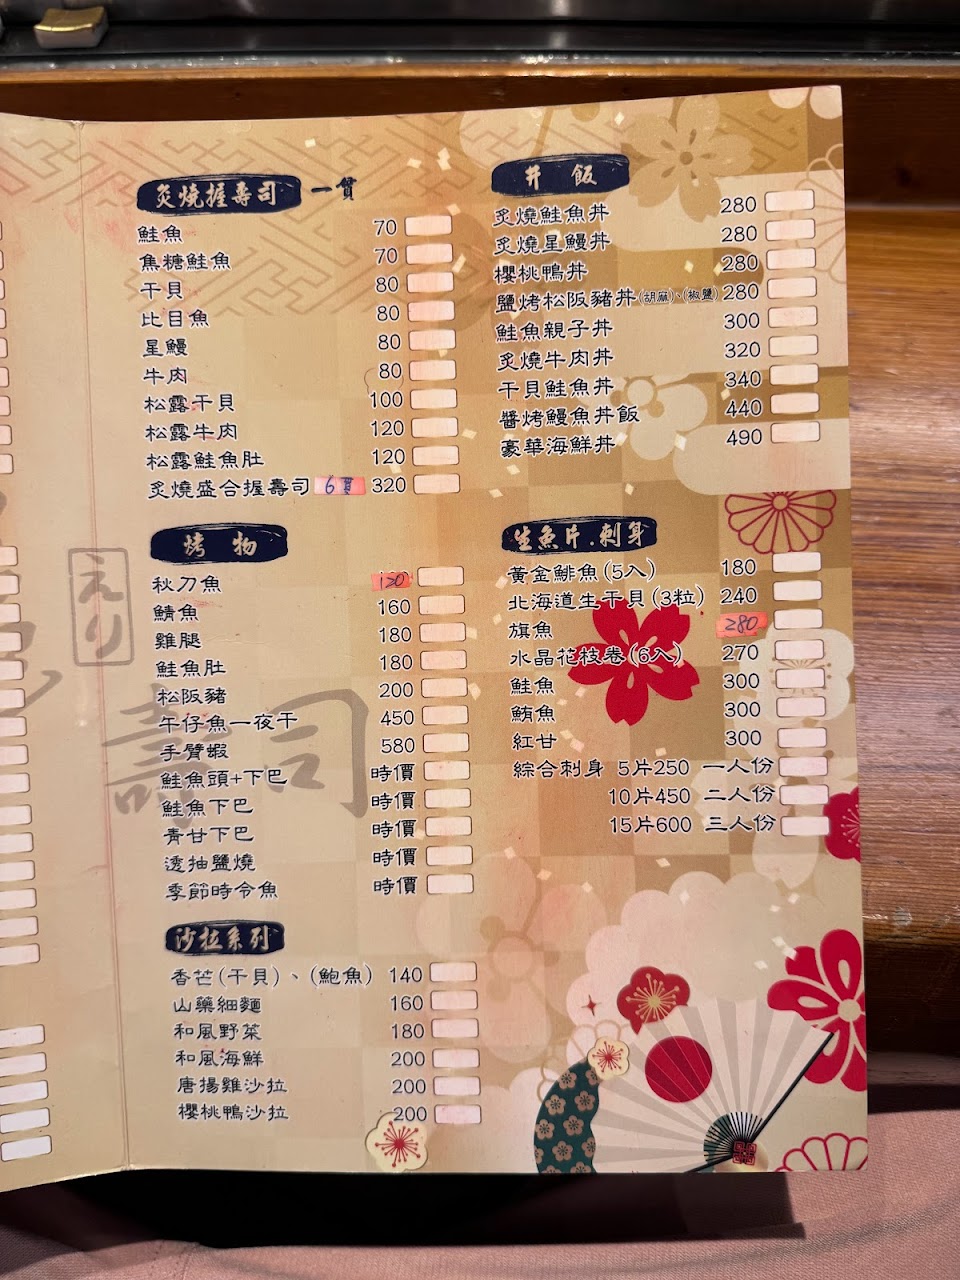 炙燒握壽司 一貫
鮭魚 70
焦糖鮭魚 70
干貝 80
比目魚 80
星鰻 80
牛肉 80
松露干貝 100
松露牛肉 120
松露鮭魚肚 120
炙燒盛合握壽司 6貫 320
烤物
秋刀魚 120
鯖魚 160
雞腿 180
鮭魚肚 180
松阪豬 200
午仔魚一夜干 450
手臂蝦 580
鮭魚頭+下巴 時價
鮭魚下巴 時價
青甘下巴 時價
透抽鹽燒 時價
季節時令魚 時價
沙拉系列
香芒(干貝)、(鮑魚) 140
山藥細麵 160
和風野菜 180
和風海鮮 200
唐揚雞沙拉 200
櫻桃鴨沙拉 200
丼飯
炙燒鮭魚丼 280
炙燒星鰻丼 280
櫻桃鴨丼 280
鹽烤松阪豬丼(胡麻)、(椒鹽) 280
鮭魚親子丼 300
炙燒牛肉丼 320
干貝鮭魚丼 340
醬烤鰻魚丼飯 440
豪華海鮮丼 490
生魚片.刺身
黃金鯡魚(5入) 180
北海道生干貝(3粒) 240
旗魚 280
水晶花枝卷(6入) 270
鮭魚 300
鮪魚 300
紅甘 300
綜合刺身 5片250 一人份
10片450 二人份
15片600 三人份
えり
壽司